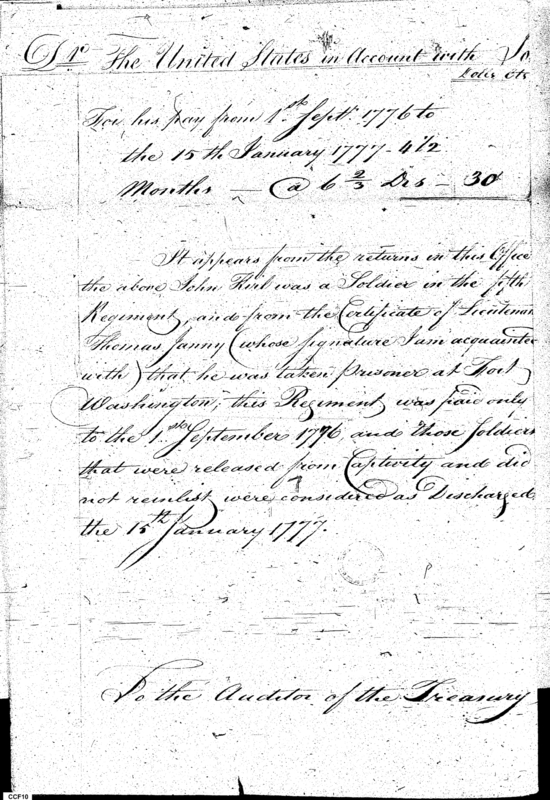 Dr The United States in Account with Jo
Dolls cts
For his pay from 1st Septr 1776 to
the 15th January 1777 - 4 1/2
Months — @ 6 2/3 Drs — 30
It appears from the returns in this Office
the above John Kirl was a Soldier in the fifth
Regiment, and from the Certificate of Lieutenan
Thomas Janny (whose signature I am acquainted
with) that he was taken prisoner at Fort
Washington; this Regiment was paid only
to the 1st September 1776, and those Soldiers
that were released from Captivity and did
not reinlist were considered as Discharged
the 15th January 1777.
To the Auditor of the Treasury
CCF10